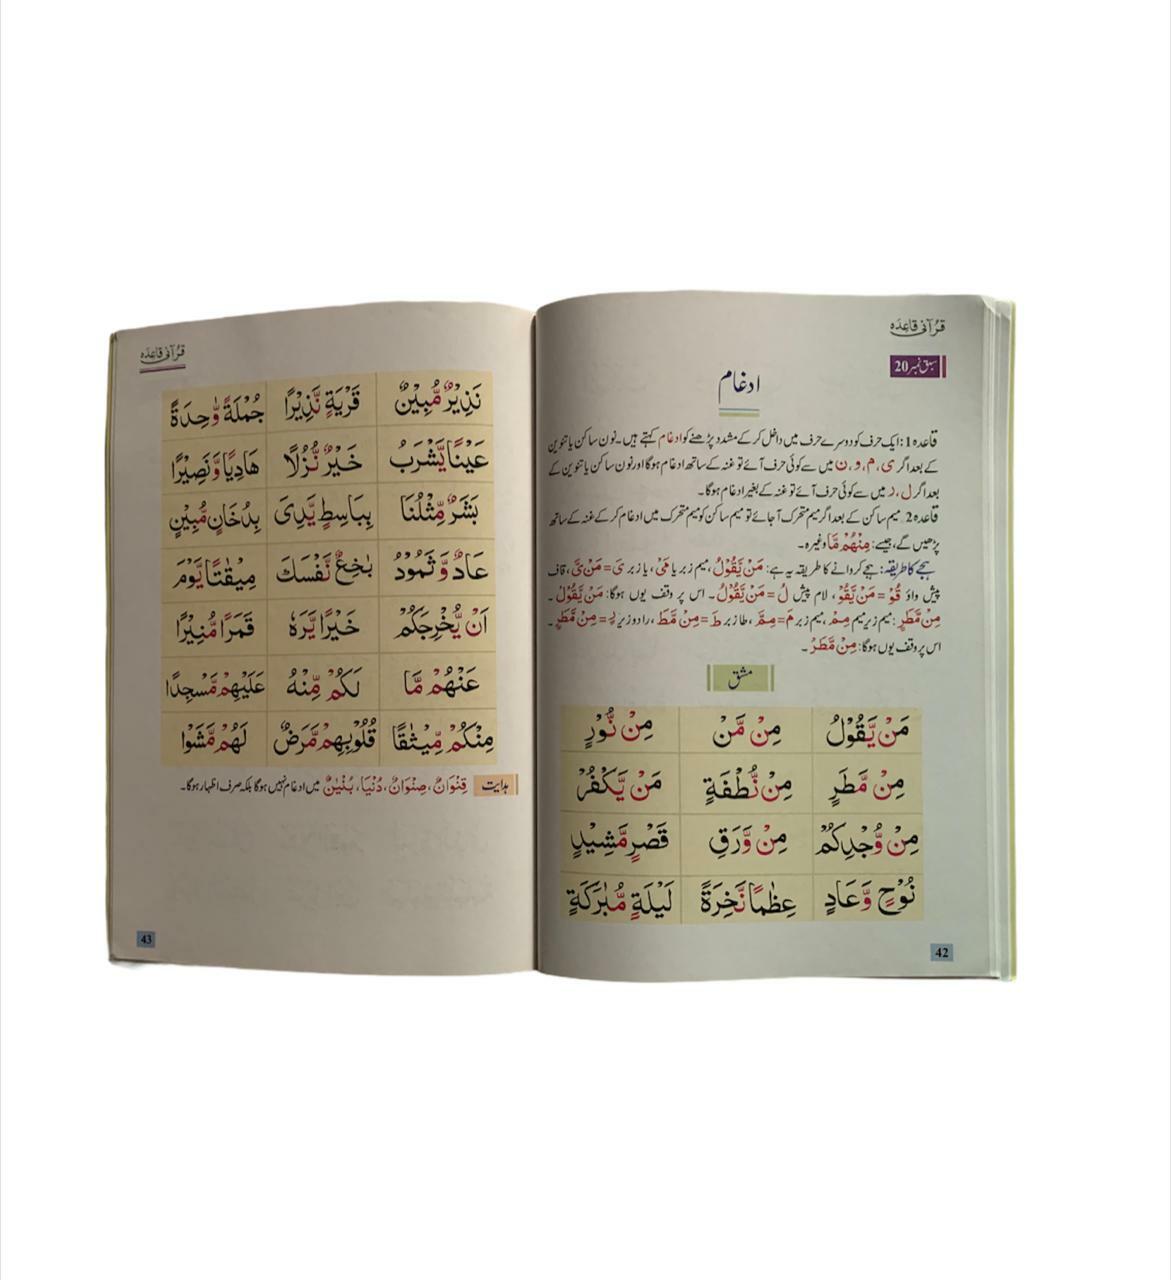 قرآنی قاعدہ
سبق نمبر 20
ادغام
قاعدہ 1: ایک حرف کو دوسرے حرف میں داخل کر کے مشدد پڑھنے کو ادغام کہتے ہیں۔ نون ساکن یا تنوین
کے بعد اگر ی، م، و، ن میں سے کوئی حرف آئے تو غنہ کے ساتھ ادغام ہوگا اور نون ساکن یا تنوین کے
بعد اگر ل، ر میں سے کوئی حرف آئے تو غنہ کے بغیر ادغام ہوگا۔
قاعدہ 2: میم ساکن کے بعد اگر میم متحرک آ جائے تو میم ساکن کو میم متحرک میں ادغام کر کے غنہ کے ساتھ
پڑھیں گے، جیسے: مِنْهُمْ مَّا وغیرہ۔
ہجے کا طریقہ: ہجے کروانے کا طریقہ یہ ہے: مَنْ يَّقُوْلُ، میم زبر یا مَیْ، یا زبر یَ = مَنْ یَّ، قاف
پیش واؤ قُوْ = مَنْ يَّقُوْ، لام پیش لُ = مَنْ يَّقُوْلُ۔ اس پر وقف یوں ہوگا: مَنْ يَّقُوْلْ۔
مِنْ مَّطَرٍ: میم زیر میم مِمْ، میم زبر مَ = مِمَّ، طا زبر طَ = مِنْ مَّطَ، را دو زیر رٍ = مِنْ مَّطَرٍ۔
اس پر وقف یوں ہوگا: مِنْ مَّطَرْ۔
مشق
مَنْ يَّقُوْلُ مِنْ مَّنْ مِنْ نُّوْرٍ
مِنْ مَّطَرٍ مِنْ نُّطْفَةٍ مَنْ يَّكْفُرْ
مِنْ وُّجْدِكُمْ مِنْ وَّرَقِ قَصْرٍ مَّشِيْدٍ
نُوْحٍ وَّعَادٍ عِظَامًا نَّخِرَةً لَيْلَةٍ مُّبٰرَكَةٍ
42
قرآنی قاعدہ
نَذِيْرٌ مُّبِيْنٌ قَرْيَةٍ نَّذِيْرًا جُمْلَةً وَّاحِدَةً
عَيْنًا يَّشْرَبُ خَيْرٌ نُّزُلًا هَادِيًا وَّنَصِيْرًا
بَشَرٌ مِّثْلُنَا بِبَاسِطٍ يَّدِيَ بِدُخَانٍ مُّبِيْنٍ
عَادٌ وَّثَمُوْدُ بٰخِعٌ نَّفْسَكَ مِيْقٰتًا يَّوْمَ
اَنْ يُّخْرِجَكُمْ خَيْرًا يَّرَهٗ قَمَرًا مُّنِيْرًا
عَنْهُمْ مَّا لَكُمْ مِّنْهُ عَلَيْهِمْ مَّسْجِدًا
مِنْكُمْ مِّيْثٰقًا قُلُوْبِهِمْ مَّرَضٌ لَهُمْ مَّشَوْا
ہدایت قِنْوَانٌ، صِنْوَانٌ، دُنْيَا، بُنْيٰنٌ میں ادغام نہیں ہوگا بلکہ صرف اظہار ہوگا۔
43